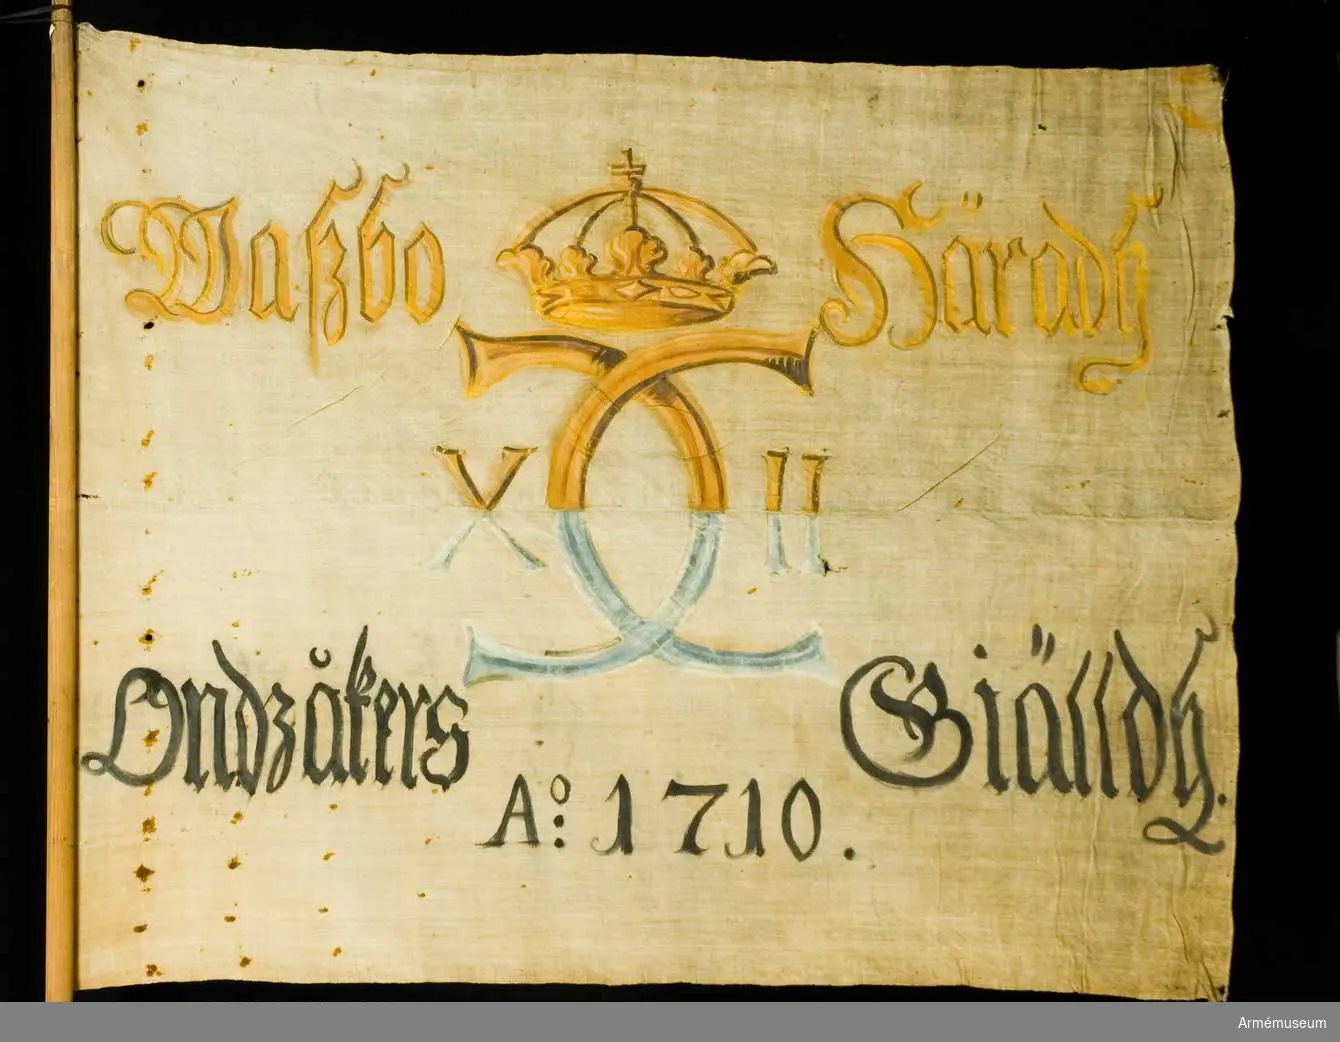 Waßbo Härady
XII
Ondzåkers Giälldy.
Ao: 1710.
Armémuseum